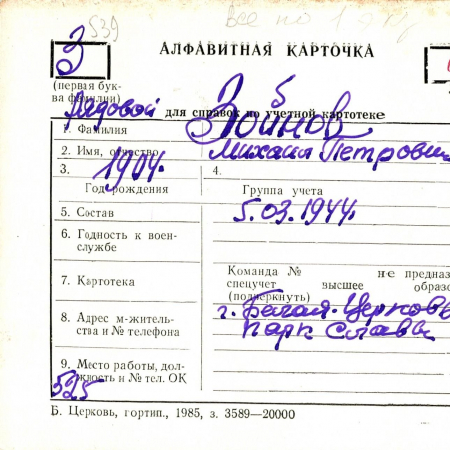 539
все по 1 экз
З
АЛФАВИТНАЯ КАРТОЧКА
(первая бук-
ва фамилии)
Рядовой
для справок по учетной картотеке
1. Фамилия
Збінов
2. Имя, отчество Михаил Петрович
3. 1904. 4.
Год рождения Группа учета
5. Состав 5.03.1944г.
6. Годность к воен-
службе
7. Картотека
Команда № не предназ
спецучет высшее образо
(подчеркнуть)
8. Адрес м-житель-
ства и № телефона
г. Белая-Церковь
парк Славы
9. Место работы, дол-
жность и № тел. ОК
525
Б. Церковь, гортип., 1985, з. 3589—20000